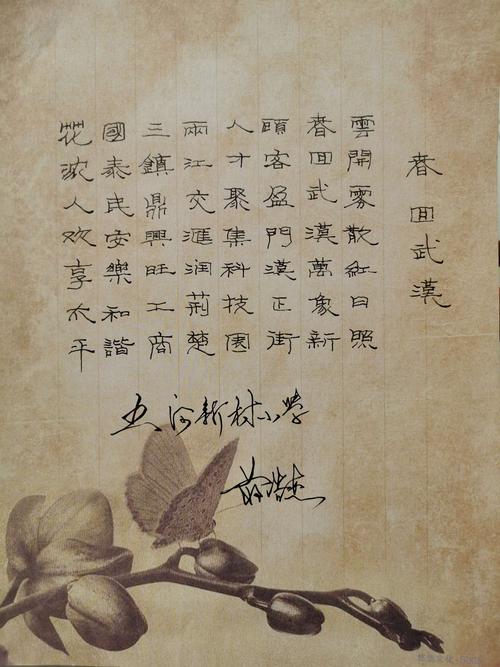 春回武漢
雲開霧散紅日照
春回武漢萬象新
頭客盈門漢正街
人才聚集科技園
兩江交滙润荊楚
三鎮鼎興旺工商
國泰民安樂和諧
花浓人欢享太平
新村小学